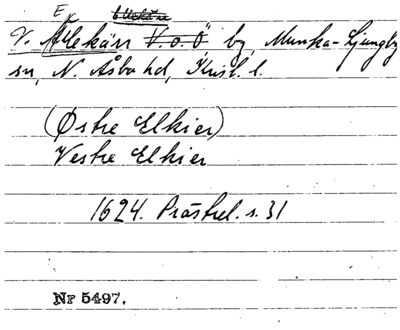 V. Ällekärr V. o. Ö by, Munka-Ljungby
sn, N. Åsbo hd, Krist. l.
(Østre Elkier)
Vestre Elkier
1624. Prästrel. s. 31
Nr 5497.